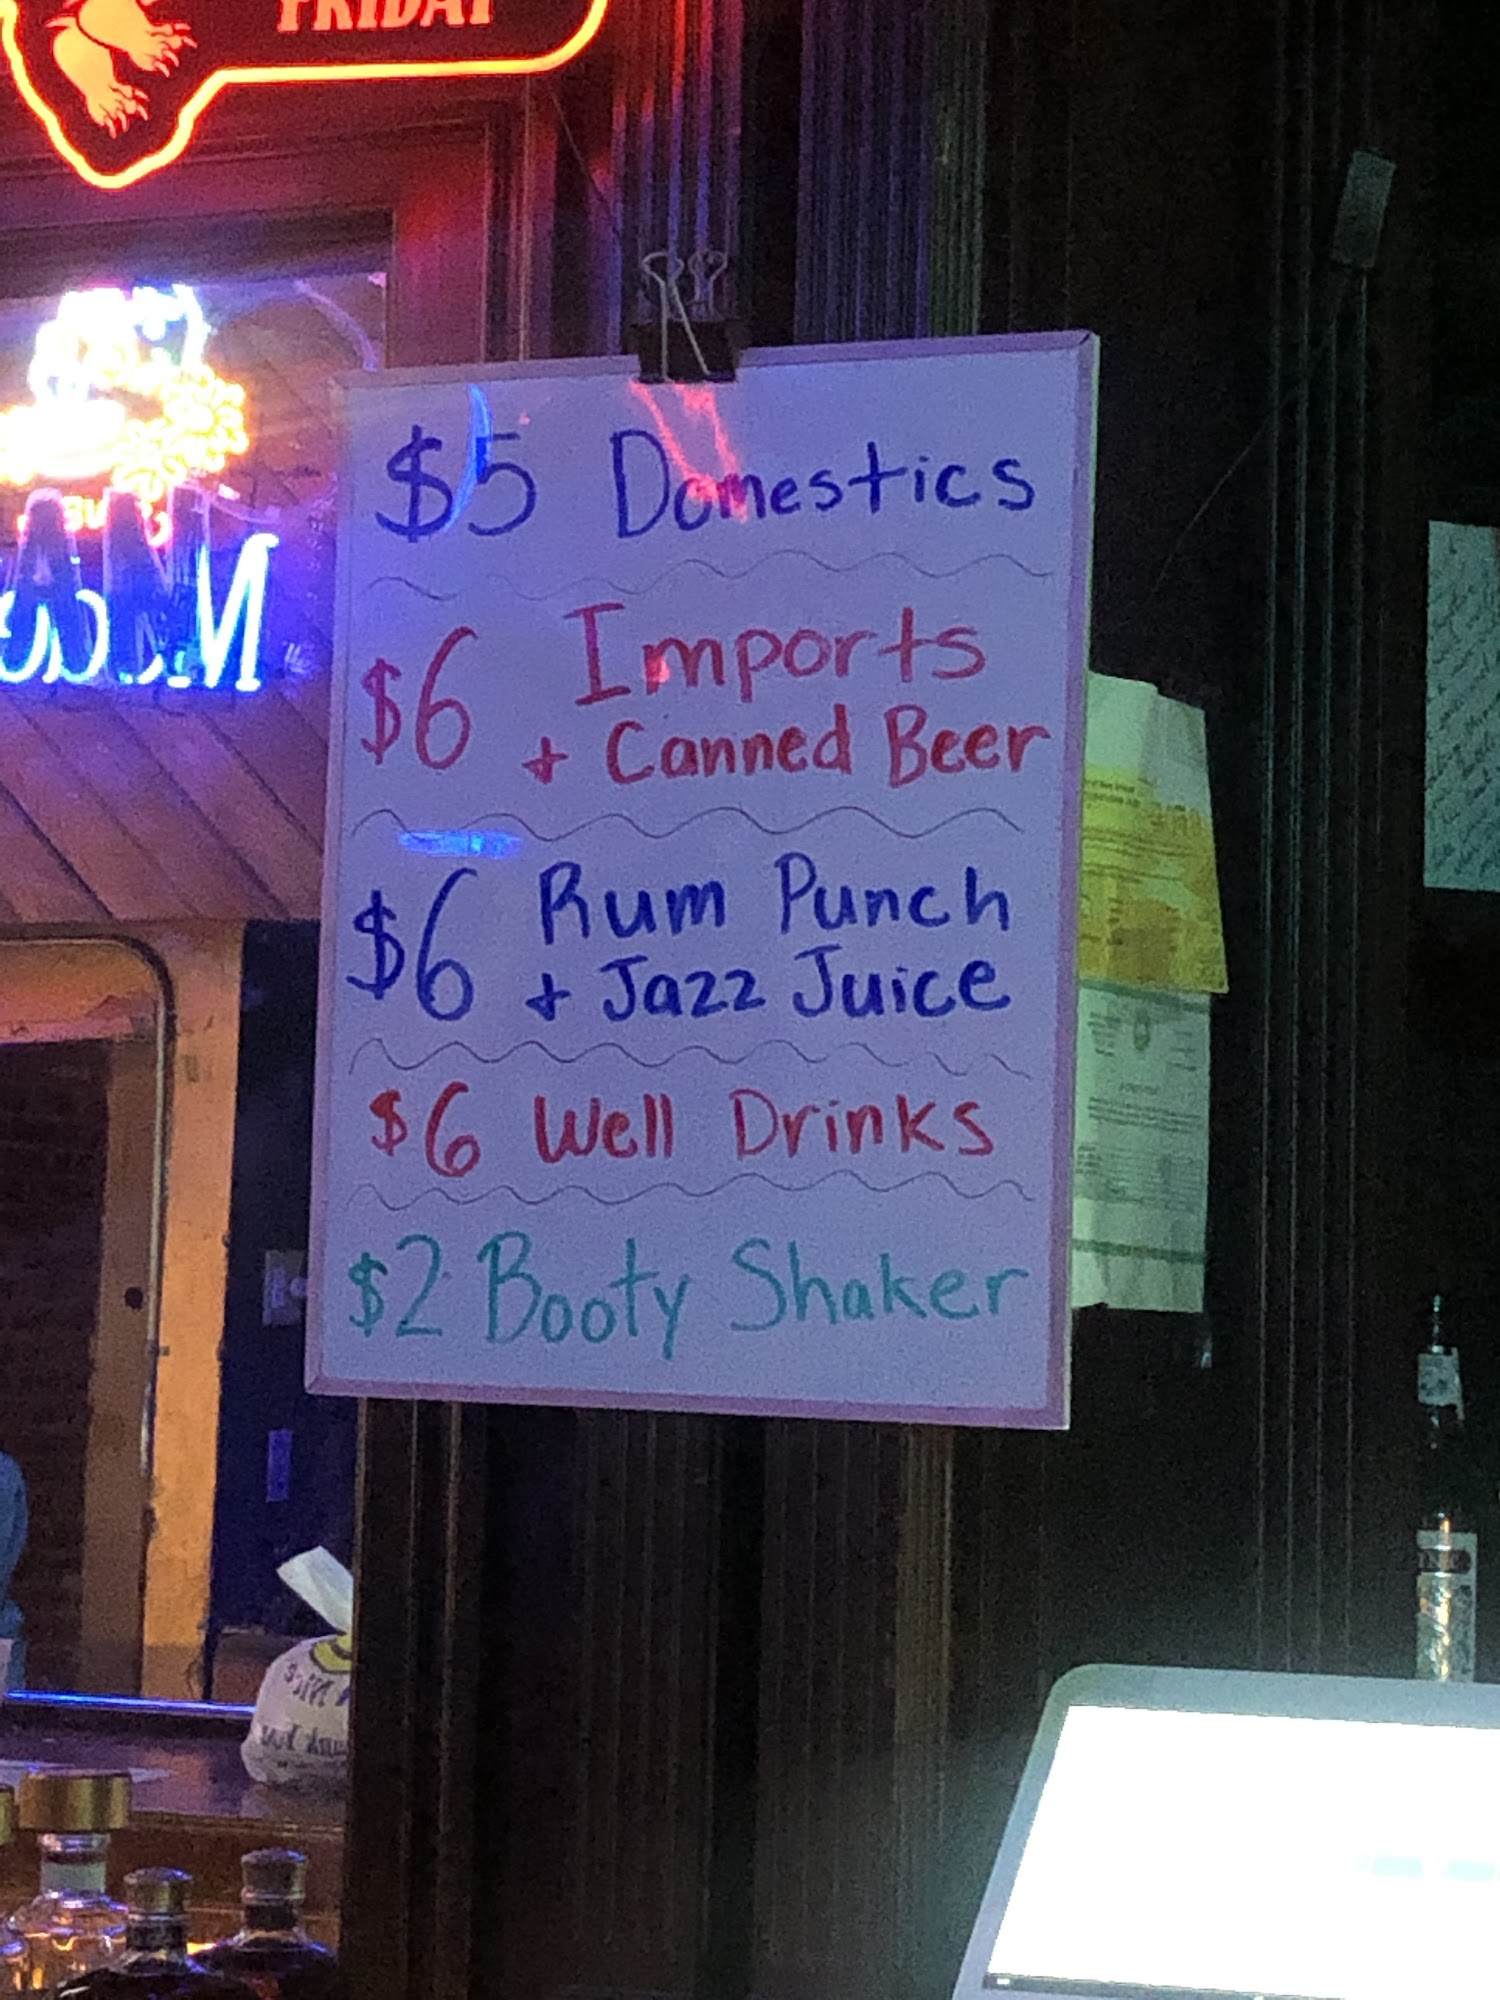 FRIDAY
$5 Domestics
$6 Imports
+ Canned Beer
$6 Rum Punch
+ Jazz Juice
$6 Well Drinks
$2 Booty Shaker